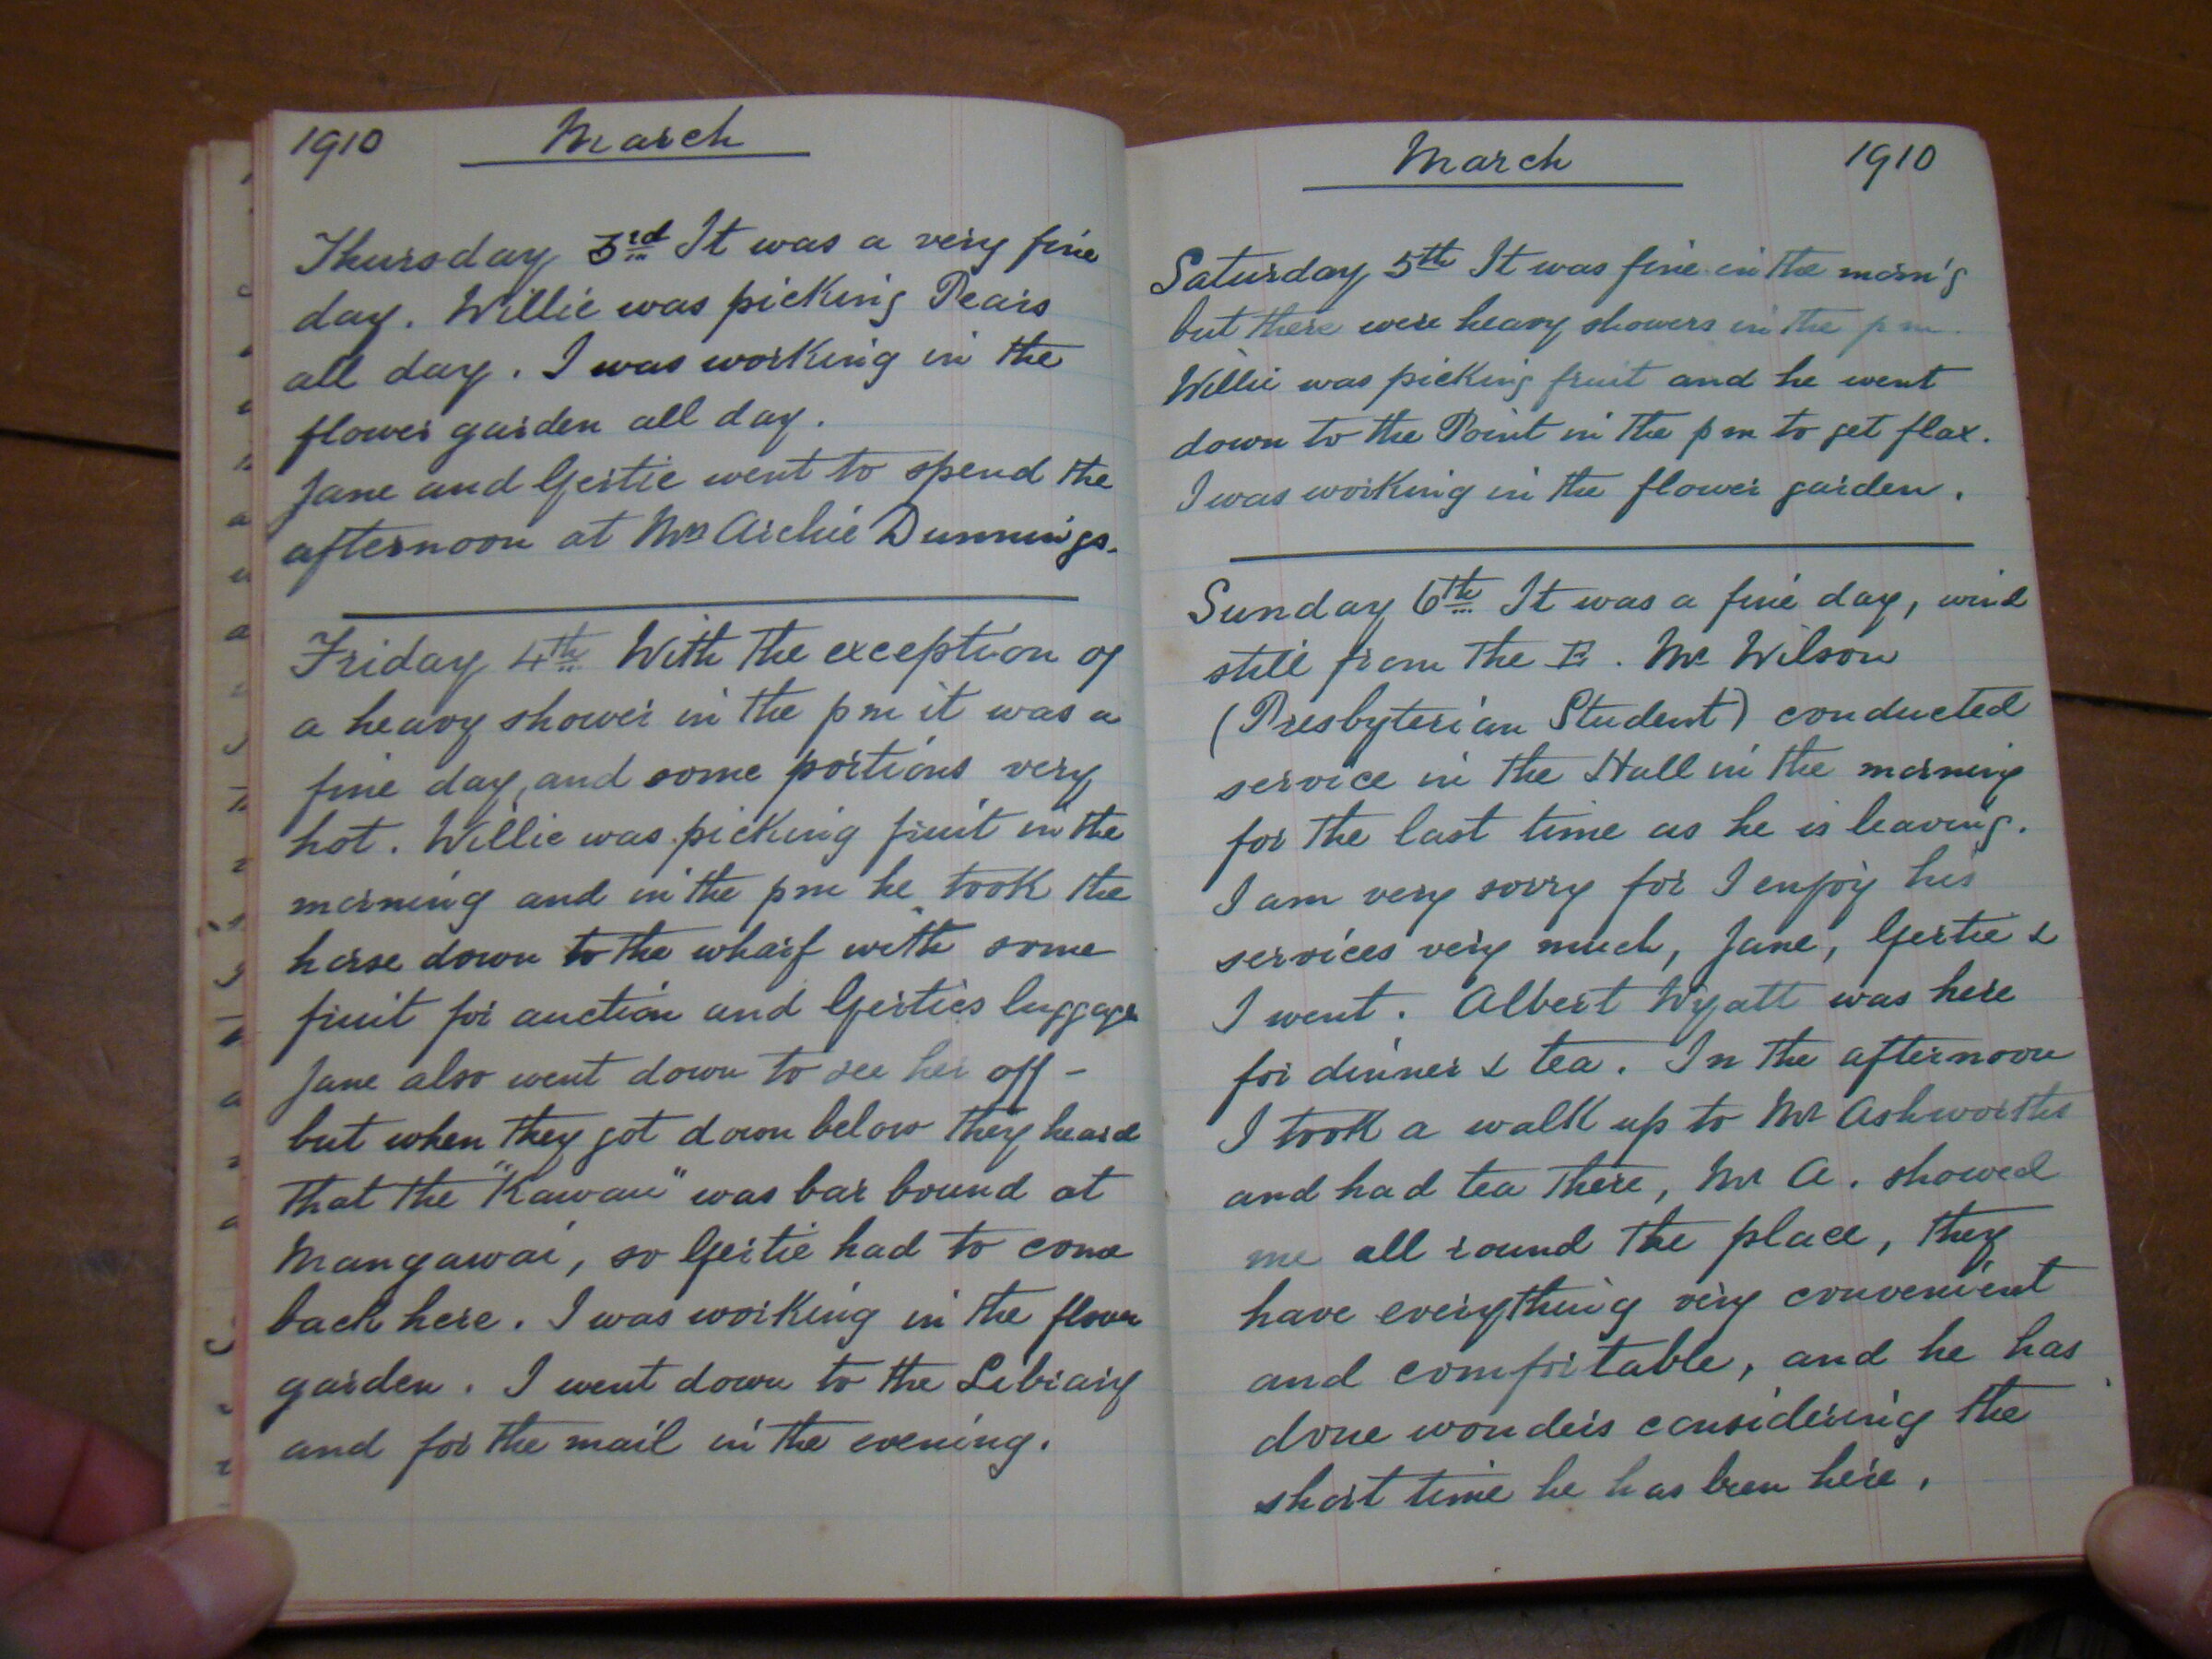 1910 March
Thursday 3rd It was a very fine
day. Willie was picking Pears
all day. I was working in the
flower garden all day.
Jane and Gertie went to spend the
afternoon at Mrs Archie Dunnings.
Friday 4th With the exception of
a heavy shower in the pm it was a
fine day, and some portions very
hot. Willie was picking fruit in the
morning and in the pm he took the
horse down to the wharf with some
fruit for auction and Gerties luggage
Jane also went down to see her off -
but when they got down below they heard
that the "Kawau" was bar bound at
Mangawai, so Gertie had to come
back here. I was working in the flower
garden. I went down to the Library
and for the mail in the evening.
March 1910
Saturday 5th It was fine in the morn'g
but there were heavy showers in the pm.
Willie was picking fruit and he went
down to the Point in the pm to get flax.
I was working in the flower garden.
Sunday 6th It was a fine day, wind
still from the E. Mr Wilson
(Presbyterian Student) conducted
service in the Hall in the morning
for the last time as he is leaving.
I am very sorry for I enjoy his
services very much, Jane, Gertie &
I went. Albert Wyatt was here
for dinner & tea. In the afternoon
I took a walk up to Mr Ashworths
and had tea there, Mr A. showed
me all round the place, they
have everything very convenient
and comfortable, and he has
done wonders considering the
short time he has been here.